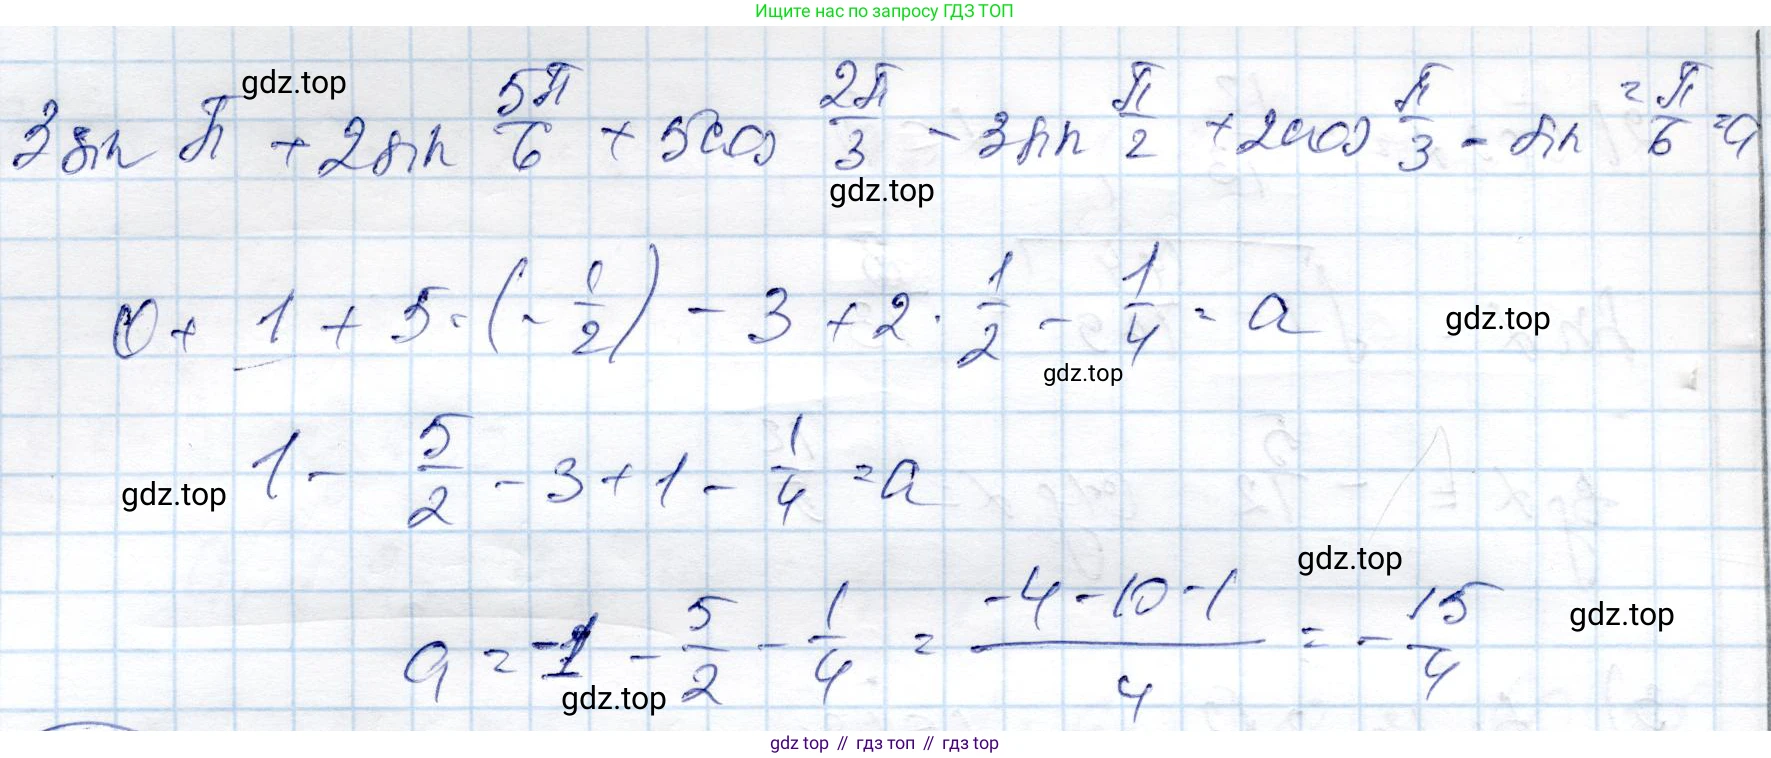 Ищите нас по запросу ГДЗ ТОП
gdz.top
3 sin π + 2 sin 5π/6 + 5 cos 2π/3 - 3 sin π/2 + 2 cos π/3 - sin² π/6 = a
gdz.top
0 + 1 + 5 · (- 1/2) - 3 + 2 · 1/2 - 1/4 = a
gdz.top
gdz.top
1 - 5/2 - 3 + 1 - 1/4 = a
gdz.top
gdz.top
a = -1 - 5/2 - 1/4 = (-4 - 10 - 1)/4 = - 15/4
gdz.top
gdz.top
gdz top // гдз топ // gdz top